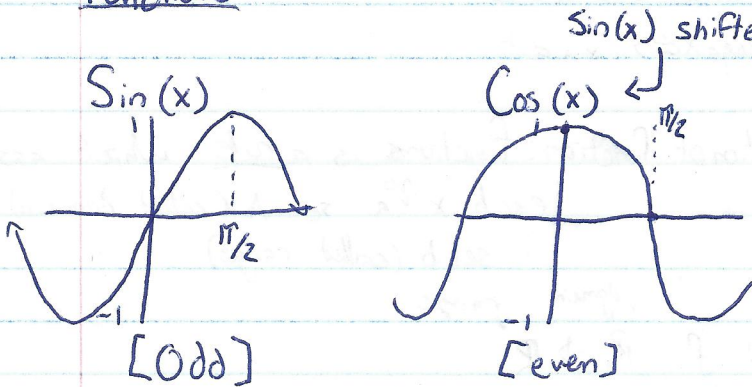 Sin(x) shifte
Sin(x)
1
π/2
-1
[Odd]
Cos(x)
1
π/2
-1
[even]